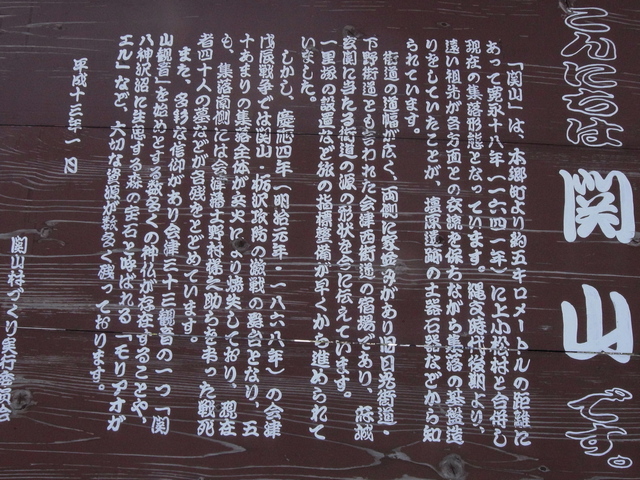 こんにちは関山です。
「関山」は、本郷町より約五キロメートルの距離に
あって寛永十八年(一六四一年)に上小松村と合併し
現在の集落形態となっています。縄文時代後期より、
遠い祖先が各方面との交流を保ちながら集落の基盤造
りをしていたことが、塩原遺跡の土器石器などから知
られています。
街道の道幅が広く、両側に家並みがあり旧日光街道・
下野街道とも言われた会津西街道の宿場であり、若松城
玄関に当たる街道の源の形状を今に伝えています。
一里塚の設置など旅の指標整備が早くから進められて
いました。
しかし、慶応四年(明治元年・一八六八年)の会津
戊辰戦争では関山、栃沢攻防の激戦の舞台となり、五
十あまりの集落全体が兵火により焼失しており、現在
も、集落南側には会津藩士野村悌之助らを弔った戦死
者四十人の墓などが名残をとどめています。
また、多彩な信仰があり会津三十三観音の一つ「関
山観音」を始めとする数多くの神仏が存在することや、
八神沢沼に生息する森の宝石と呼ばれる「モリアオガ
エル」など、大切な資源が数多く残っております。
平成十三年一月
関山村づくり実行委員会